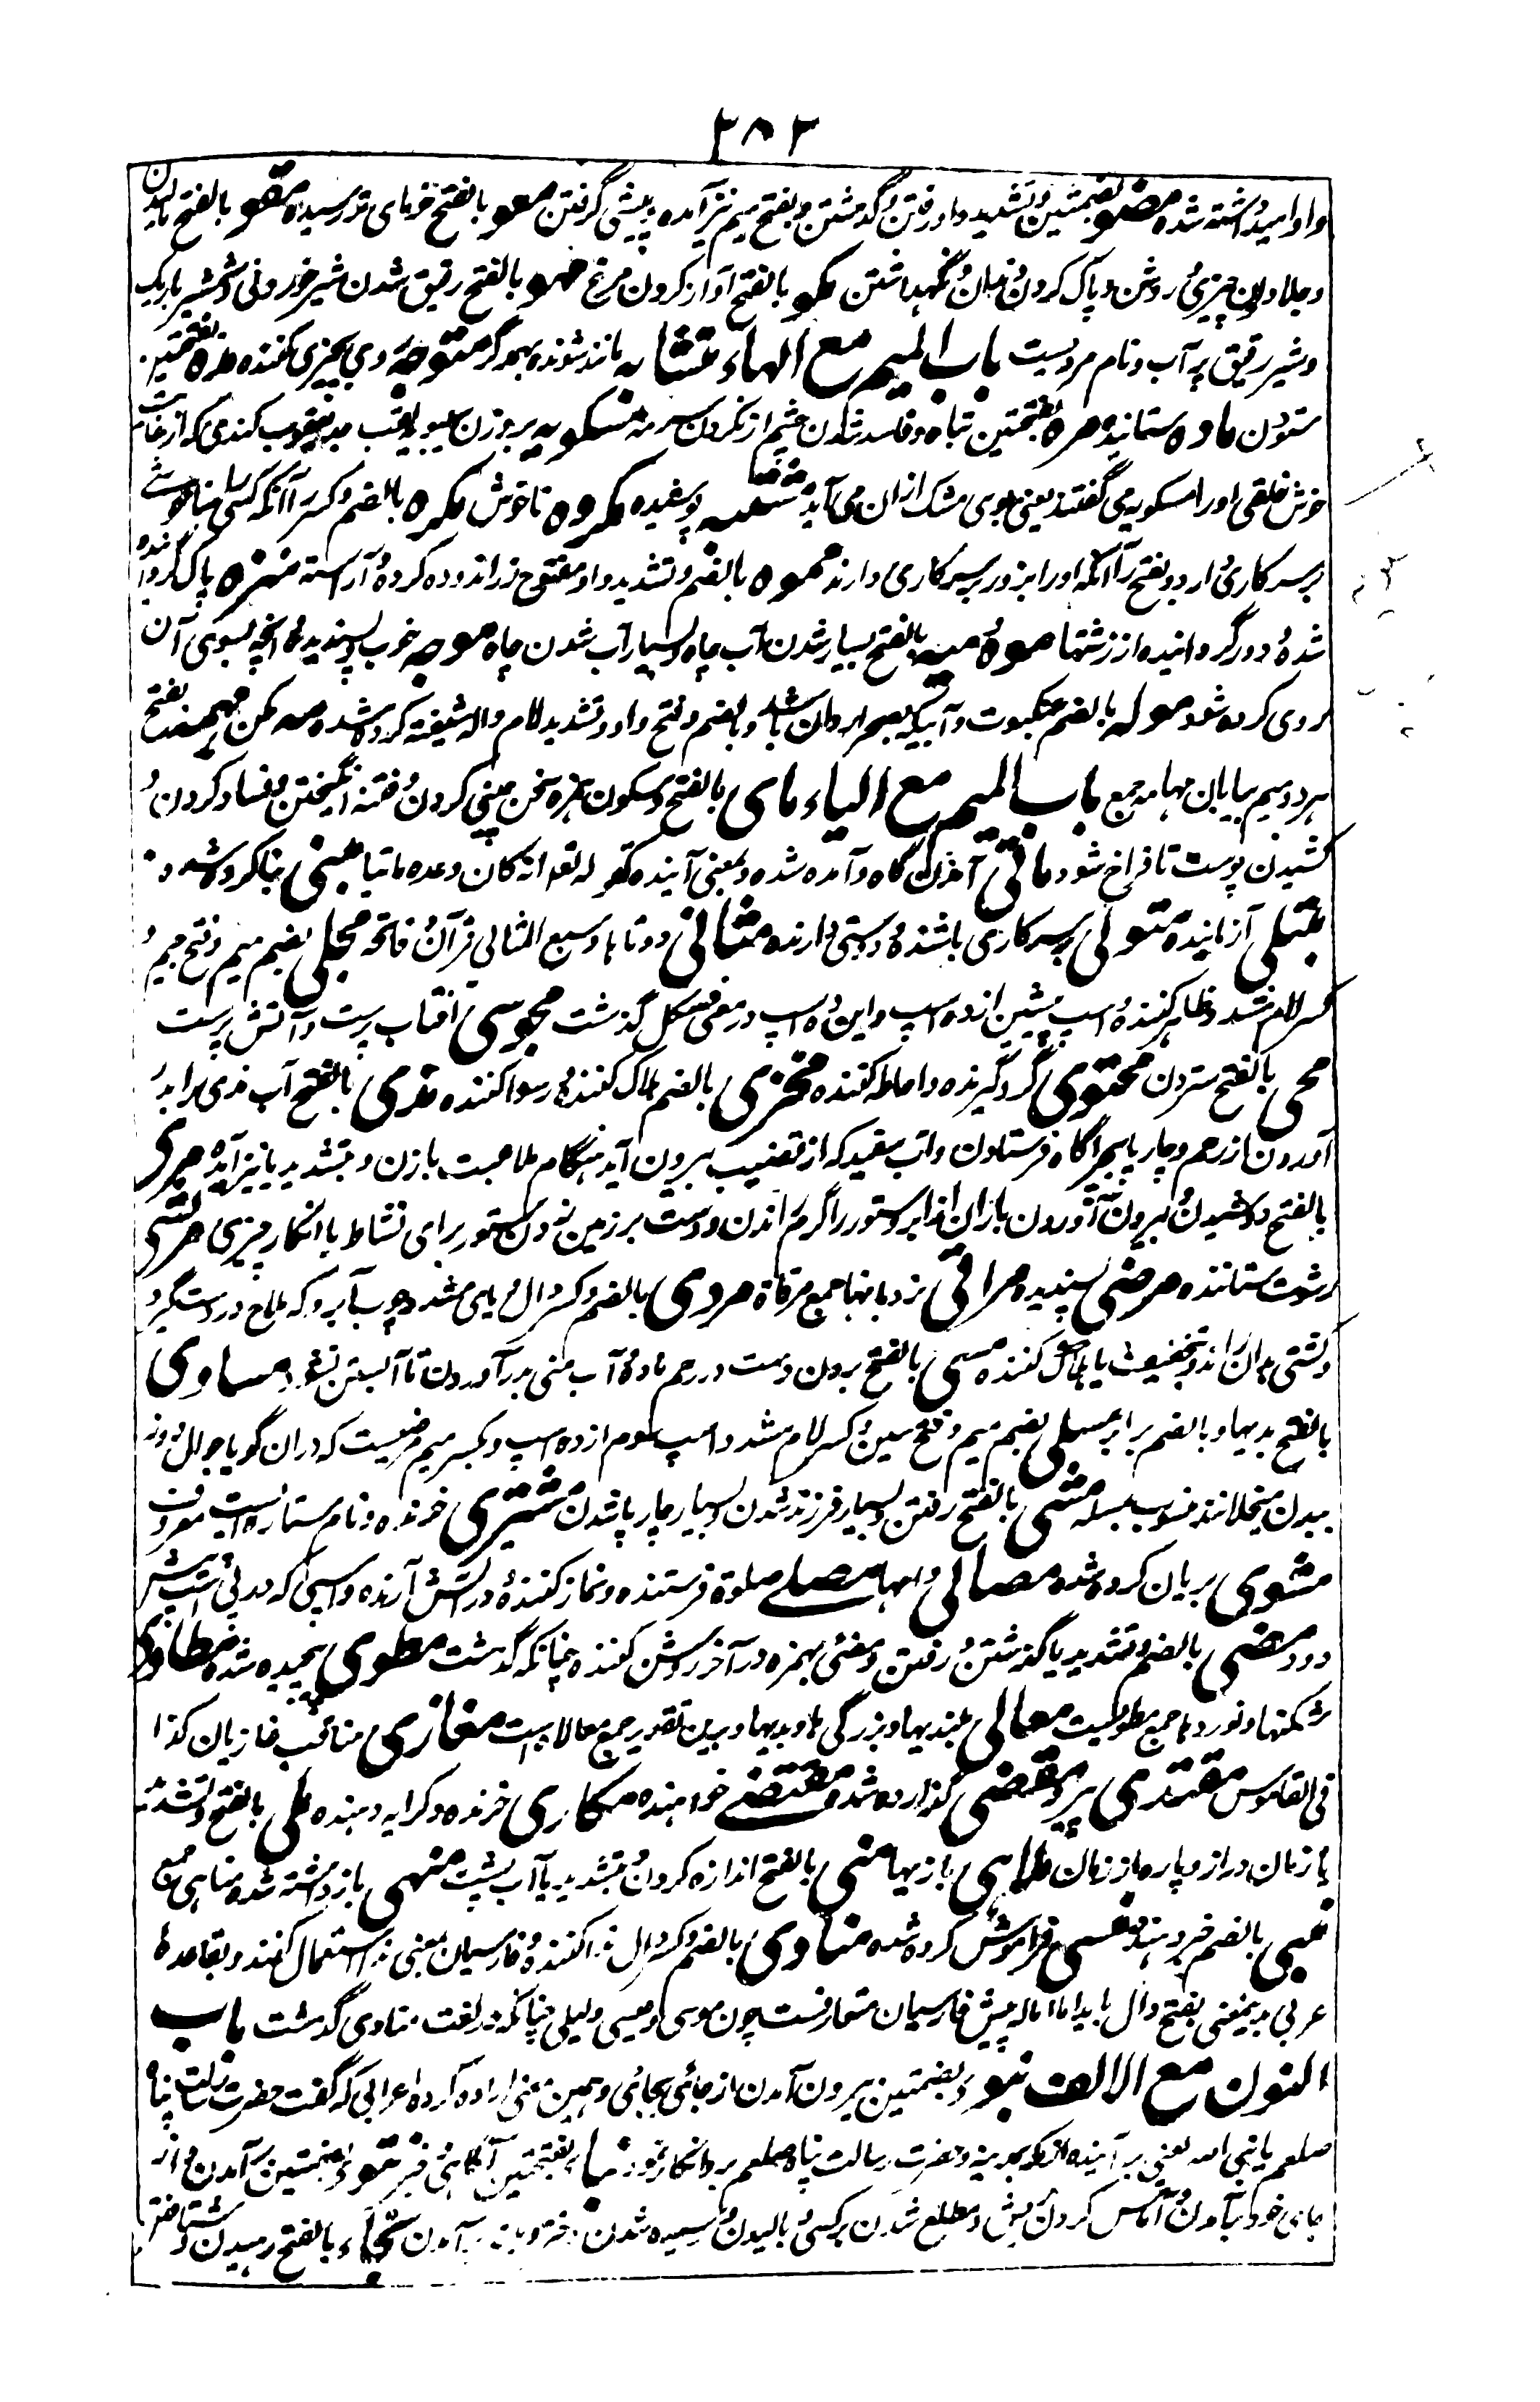 ۳۸۲
و او امید داشته شده مضو بضمتین و تشدید واو رفتن و گذشتن و بفتح میم نیز آمده پیشی گرفتن معو بالفتح خرمای تر رسیده مقو بالفتح
و جلا دادن چیزی روشن و پاک کردن و نگهداشتن مکو بالفتح آواز کردن مرغ مهو بالفتح رقیق شدن شیر خوردنی و شمشیر باریک
و شیر رقیق پر آب و نام مردیست باب المیم مع الهاء متشابه مانند شونده بهمدگر متوجه روی بچیزی کننده مده بفتحتین
ستودن ماده ستاننده مره بفتحتین تباه و فاسد شدن چشم از نکردن سرمه مسکویه بر وزن سیبویه لقب یعقوب کندی که از غایت
خوش خلقی او را مسکویه می گفتند یعنی بوی مشک ازان می آید مشتبه پوشیده مکروه ناخوش مکره بالضم و کسر را آنکه کسی را بناخوشی
بر سر کاری آرد و بفتح را آنکه او را بزور بر سر کاری دارند مموه بالضم و تشدید واو مفتوح زر اندوده کرده و آراسته منزه پاک گردانیده
شده و دور گردانیده از زشتیها موه میه بالفتح بسیار شدن آب چاه و بسیار آب شدن چاه موجه خوب و پسندیده و آنچه بسوی آن
روی کرده شود موله بالضم عنکبوت و آبیکه بصحرا روان باشد و بالضم و فتح واو و تشدید لام واله شیفته کرده شده مه مکن مهمه بفتح
هر دو میم بیابان مهامه جمع باب المیم مع الیاء مای بالفتح و سکون همزه سخن چینی کردن و فتنه انگیختن و فساد کردن و
کشیدن پوست تا فراخ شود ماتی آمدن گاه و آمده شده و بمعنی آینده کقوله تعو انه کان وعده ماتیا مبنی بنا کرده شده
مبتلی آزماینده متولی بر سر کاری باشنده و دوستی دارنده مثانی دوتاها و سبع المثانی قرآن و فاتحه مجلی بضم میم و فتح جیم و
کسر لام مشدد ظاهر کننده و اسپ پیشین از ده اسپ و این ده اسپ در معنی فسکل گذشت مجوسی آفتاب پرست و آتش پرست
محی بالفتح ستردن محتوی گرد گیرنده و احاطه کننده مخزی بالضم هلاک کننده و رسوا کننده مذی بالفتح آب مذی برابر
آوردن از رحم و چارپا بچراگاه فرستادن و آب سفید که از قضیب بیرون آید هنگام ملاعبت با زن و بتشدید یا نیز آمده مری
بالفتح دوشیدن و بیرون آوردن باران از ابر و ستور را گرم راندن و دست بر زمین زدن ستور برای نشاط یا انکار چیزی مرتشی
رشوت ستاننده مرضی پسندیده مراقی نردبانها جمع مرقاة مردی بالضم و کسر دال و یای مشدد چوب آب رو که ملاح در دست گیرد و
کشتی بدان راند و بتخفیف یا هلاک کننده مسی بالفتح بردن دست در رحم ماده و آب منی بدر آوردن تا آبستن نشود مساوی
بالفتح بدیها و بالضم برابر مسلی بضم میم و فتح سین و کسر لام مشدد اسپ سوم از ده اسپ و بکسر میم مرضیست که دران گویا جوالدوز
ببدن میخلانند منسوب بمسله مشی بالفتح رفتن و بسیار فرزند شدن و بسیار چارپا شدن مشتری خرنده و نام ستاره ایست معروف
مشوی بریان کرده شده مصالی دامها مصلی صلوة فرستنده و نماز کننده و در آتش آرنده و اسپی که در پی اسپ پیشین
دود مضی بالضم و تشدید یا گذشتن و رفتن و مضئی بهمزه در آخر روشن کننده چنانکه گذشت مطوی پیچیده شده مطاوی
شکنها و نوردها جمع مطویست معالی بلندیها و بزرگی ها و بدیها و برین تقدیر جمع معلا ایست مغازی مناقب غازیان کذا
فی القاموس مقتدی پیرو مقضی گذارده شده مقتضی خواهنده مکاری خرنده و کرایه دهنده ملی بالفتح و تشدید
یا زمان دراز و پاره از زمان ملاهی بازیها منی بالفتح اندازه کردن و بتشدید یا آب پشت منهی باز داشته شده مناهی جمع
منبی بالضم خبر دهنده منسی فراموش کرده شده منادی بالضم و کسر دال ندا کننده و فارسیان بمعنی ندا استعمال کنند و بقاعدهٔ
عربی بدینمعنی بفتح دال باید اما اماله پیش فارسیان متعارفست چون موسی و عیسی و لیلی چنانکه در لغت منادی گذشت باب
النون مع الالف نبو بضمتین بیرون آمدن از جائی بجائی و همین معنی اراده کرده اعرابی که گفت حضرت رسالت پناه
صلعم یا نبی الله یعنی بر آینده از مکه بمدینه و حضرت رسالت پناه صلعم برو انکار نمود نبا بفتحتین آگاهی و خبر نتو بضمتین بر آمدن و از
جای خود بر آمدن و آماس کردن ریش و مطلع شدن بر کسی و بالیدن و رسیده شدن دختر نجاء بالفتح رهیدن و شتافتن